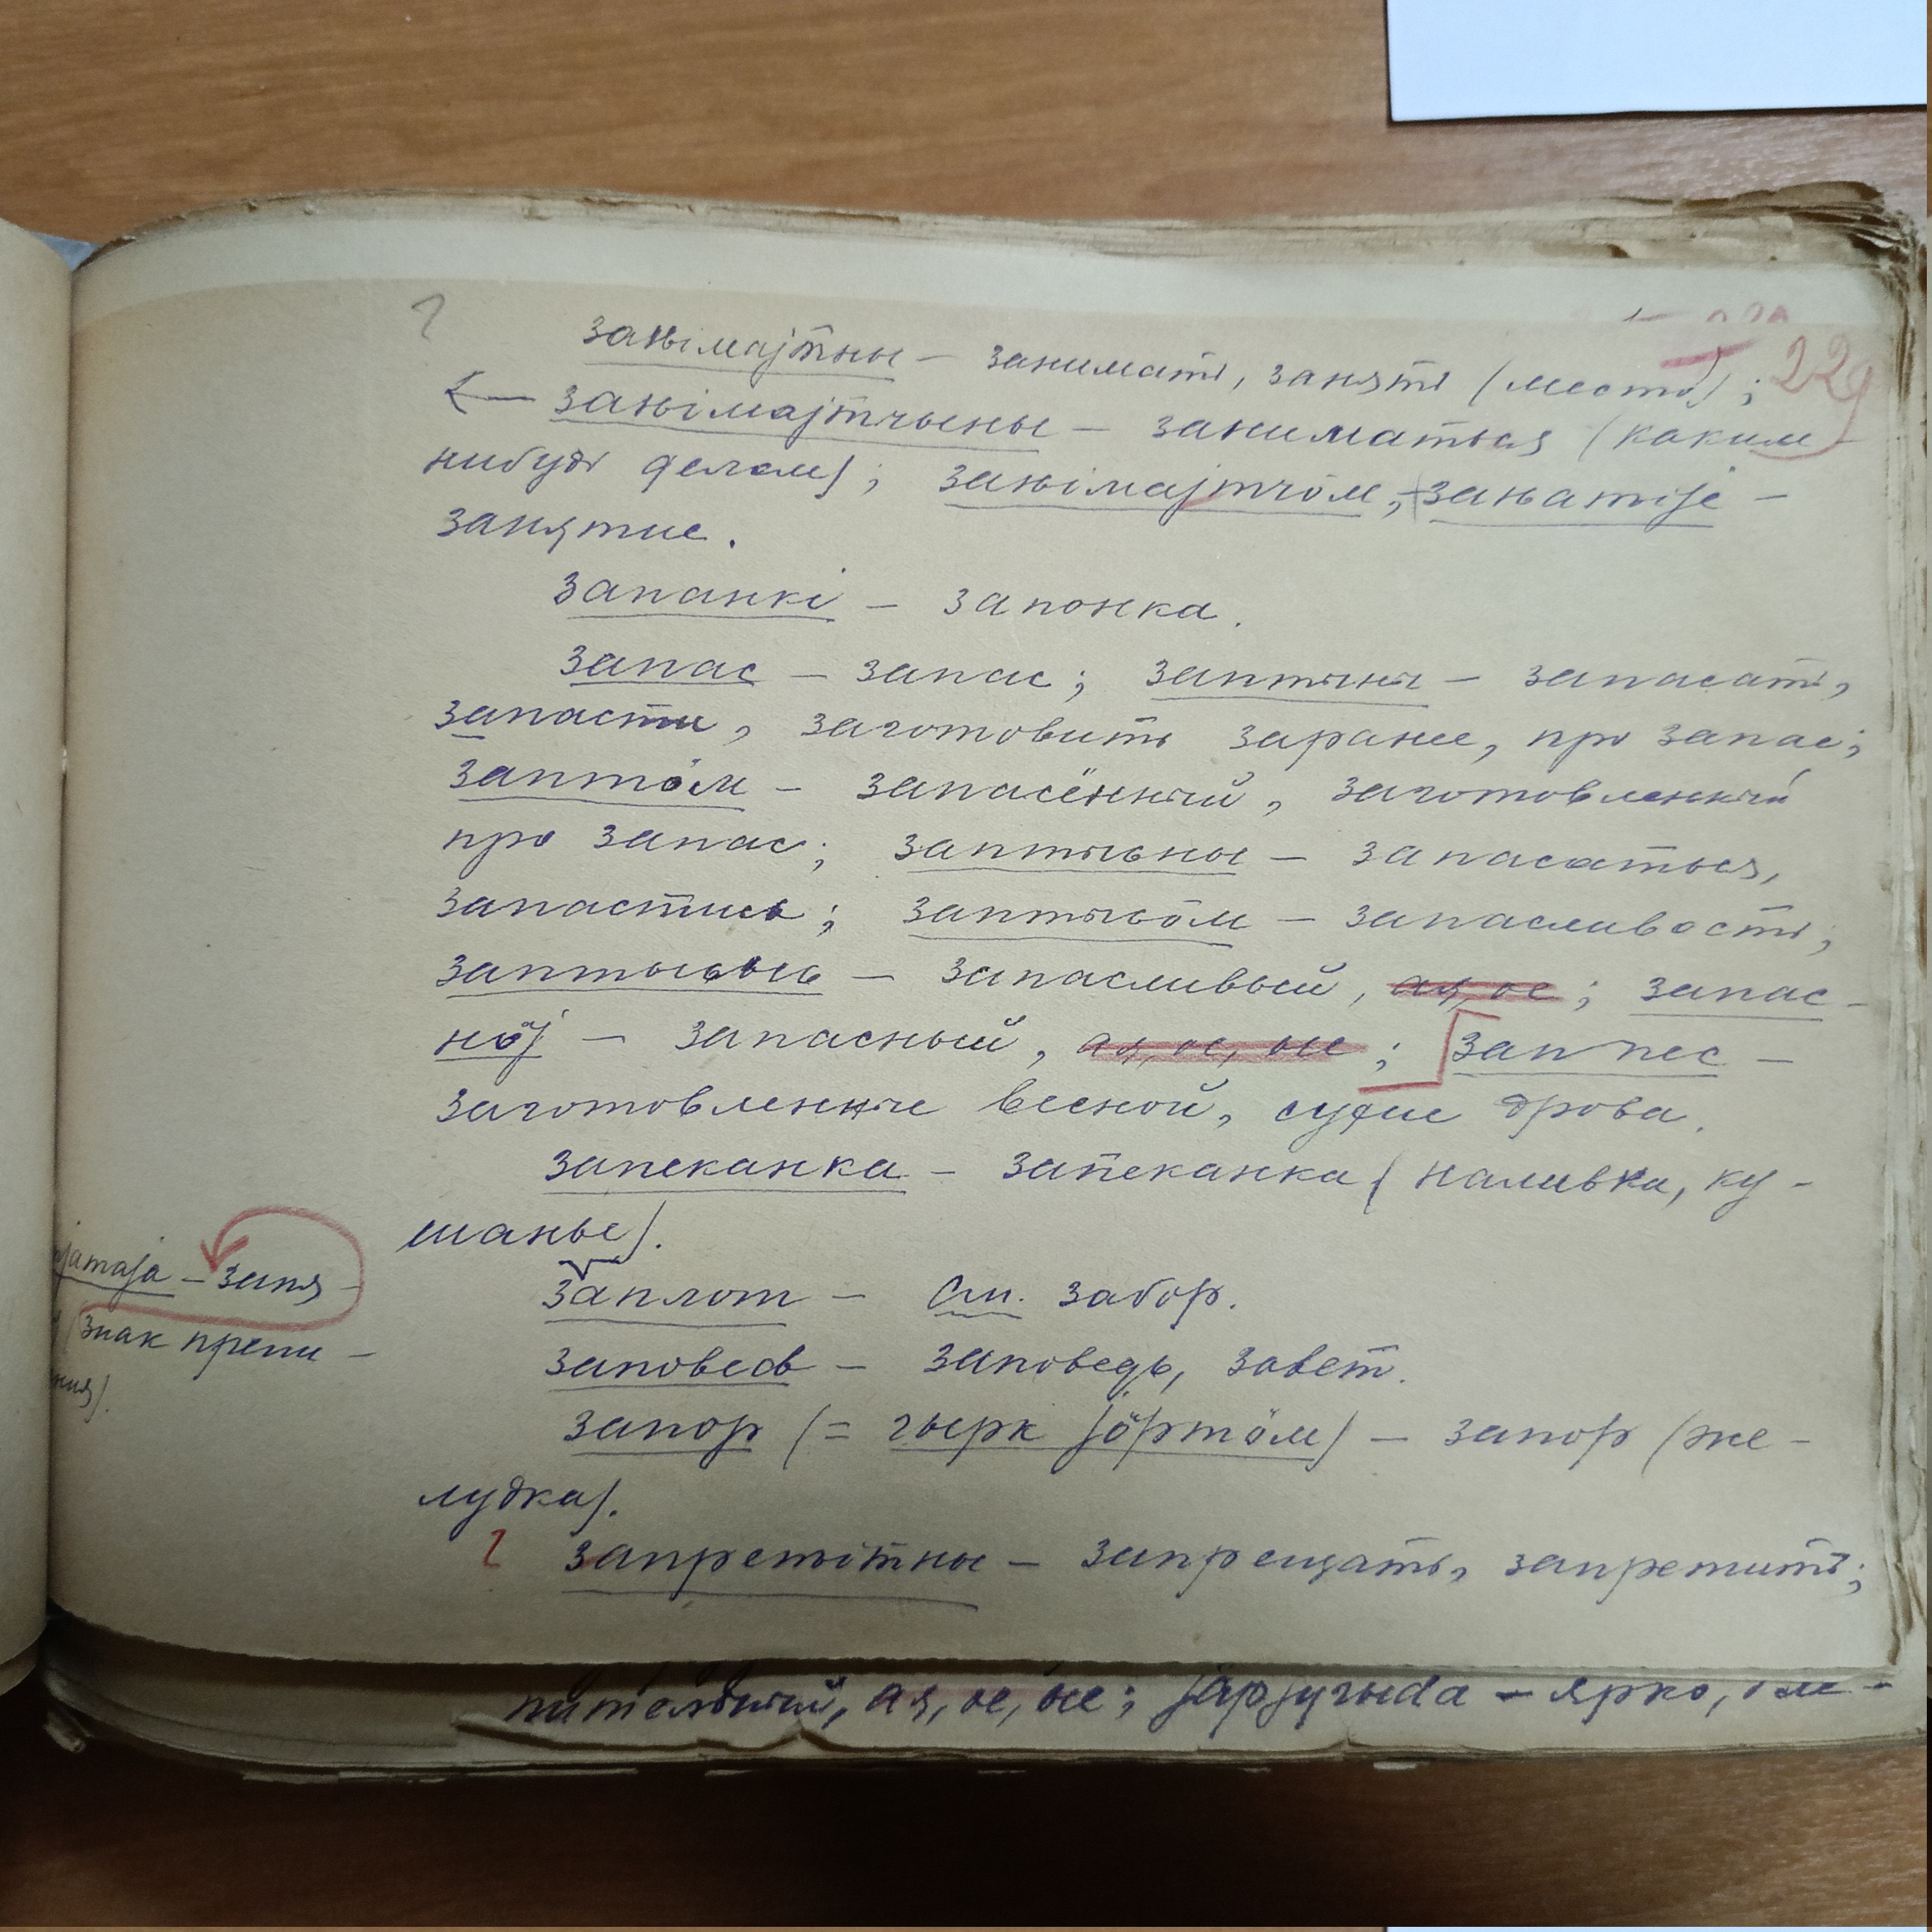 229
зањімајтны – занимать, занять (место);
← зањімајтчыны – заниматься (каким-
нибудь делом); зањімајтчӧм, зањатіје –
занятие.
запанкі – запонка.
запас – запас; заптыны – запасать,
запасти, заготовить заранее, про запас;
заптӧм – запасённый, заготовленный
про запас; заптыԍны – запасаться,
запастись; заптыԍӧм – запасливость;
заптыԍыԍ – запасливый, ая, ое; запас-
нӧј – запасный, ая, ое, ые; зап пес –
заготовленные весной, сухие дрова.
запеканка – запеканка (наливка, ку-
шанье).
јатаја – запя-
(знак препи-
ния).
заплот – см. забор.
заповедь – заповедь, завет.
запор (= гырк јӧртӧм) – запор (же-
лудка).
? запретітны – запрещать, запретить;
пительный, ая, ое, ые; јарјугыԁа – ярко,